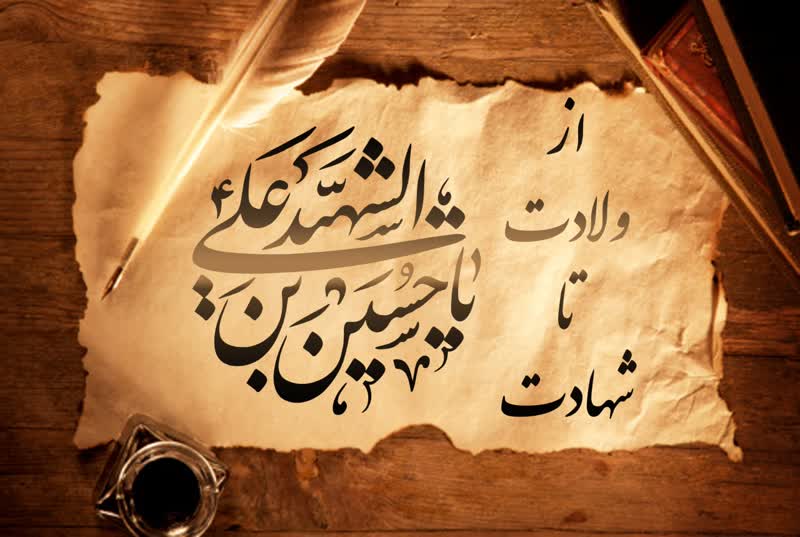 از
ولادت
تا
شهادت
یا حسین بن علی
الشهید